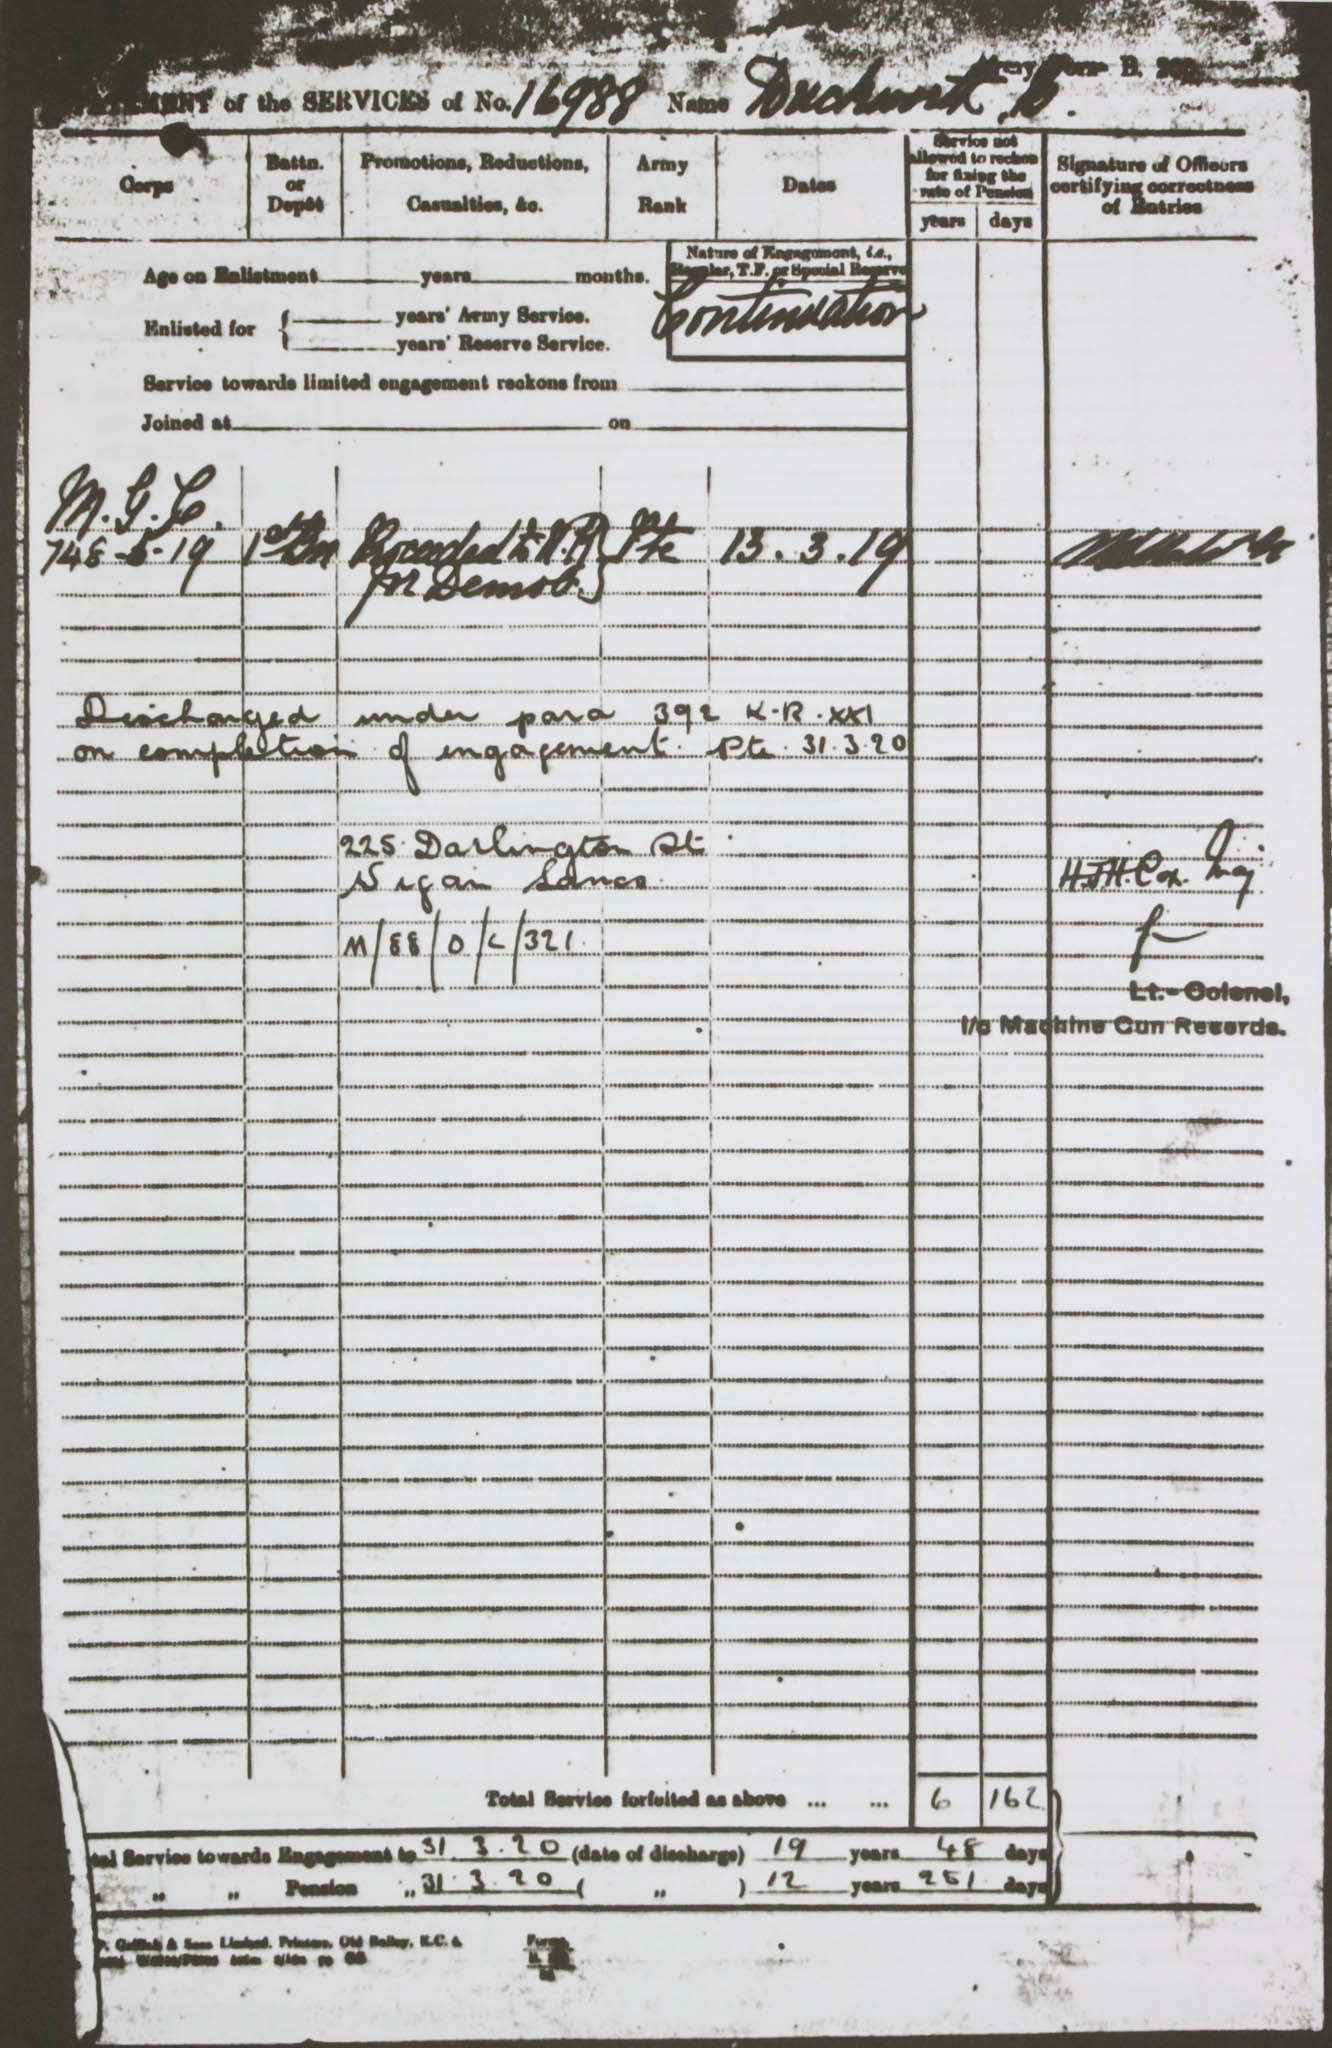 Army Form B.
of the SERVICES of No. 16988 Name Duckworth,
Corps
Battn. or Depôt
Promotions, Reductions, Casualties, &c.
Army Rank
Dates
Service not allowed to reckon for fixing the rate of Pension
years days
Signature of Officers certifying correctness of Entries
Age on Enlistment years months.
Nature of Engagement, i.e., Regular, T.F. or Special Reserve
Continuation
Enlisted for { years' Army Service.
years' Reserve Service.
Service towards limited engagement reckons from
Joined at on
M.G.C.
748-5-19 1st Bn Proceeded to U.K } Pte 13.3.19
for Demob.
Discharged under para 392 K.R. XXI
on completion of engagement. Pte. 31.3.20
225 Darlington St.
Wigan Lancs.
H.J.H. Cox. Maj
M/88/D/L/321.
for
Lt.-Colonel,
I/c Machine Gun Records.
Total Service forfeited as above ... ... 6 162
Service towards Engagement to 31.3.20 (date of discharge) 19 years 48 days
" " Pension " 31.3.20 ( " ) 12 years 251 days
& Sons Limited, Printers, Old Bailey, E.C. 4
Forms